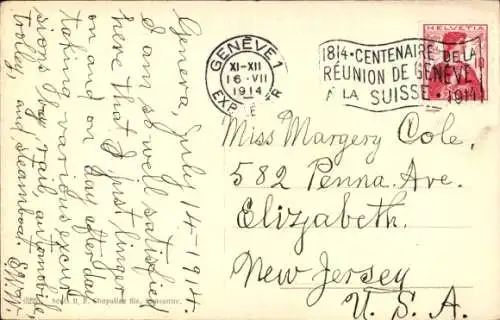 Geneva, July 14-1914.
I am so well satisfied
here that I just linger
on and on day after day
taking various excur
sions by rail, automobile,
trolley, and steamboat. E.W.W.
GENÈVE 1
XI-XII
16·VII
1914
EXP.
1814·CENTENAIRE DE LA
RÉUNION DE GENÈVE
À LA SUISSE·1914
HELVETIA
10
Miss Margery Cole,
582 Penna. Ave.
Elizabeth.
New Jersey
U. S. A.